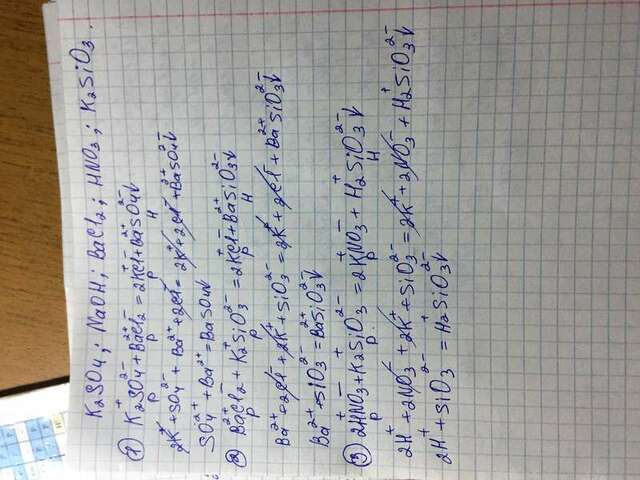 K₂SO₄; NaOH; BaCl₂; HNO₃; K₂SiO₃.
① K₂⁺SO₄²⁻ + Ba²⁺Cl₂⁻ = 2K⁺Cl⁻ + Ba²⁺SO₄²⁻↓
р р р н
2K⁺ + SO₄²⁻ + Ba²⁺ + 2Cl⁻ = 2K⁺ + 2Cl⁻ + Ba²⁺SO₄²⁻↓
SO₄²⁺ + Ba²⁺ = BaSO₄↓
② Ba²⁺Cl₂⁻ + K₂⁺SiO₃²⁻ = 2K⁺Cl⁻ + Ba²⁺SiO₃²⁻↓
р р р н
Ba²⁺ + 2Cl⁻ + 2K⁺ + SiO₃²⁻ = 2K⁺ + 2Cl⁻ + Ba²⁺SiO₃²⁻↓
Ba²⁺ + SiO₃²⁻ = Ba²⁺SiO₃²⁻↓
③ 2H⁺NO₃⁻ + K₂⁺SiO₃²⁻ = 2K⁺NO₃⁻ + H₂⁺SiO₃²⁻↓
р р р н
2H⁺ + 2NO₃⁻ + 2K⁺ + SiO₃²⁻ = 2K⁺ + 2NO₃⁻ + H₂⁺SiO₃²⁻↓
2H⁺ + SiO₃²⁻ = H₂⁺SiO₃²⁻↓